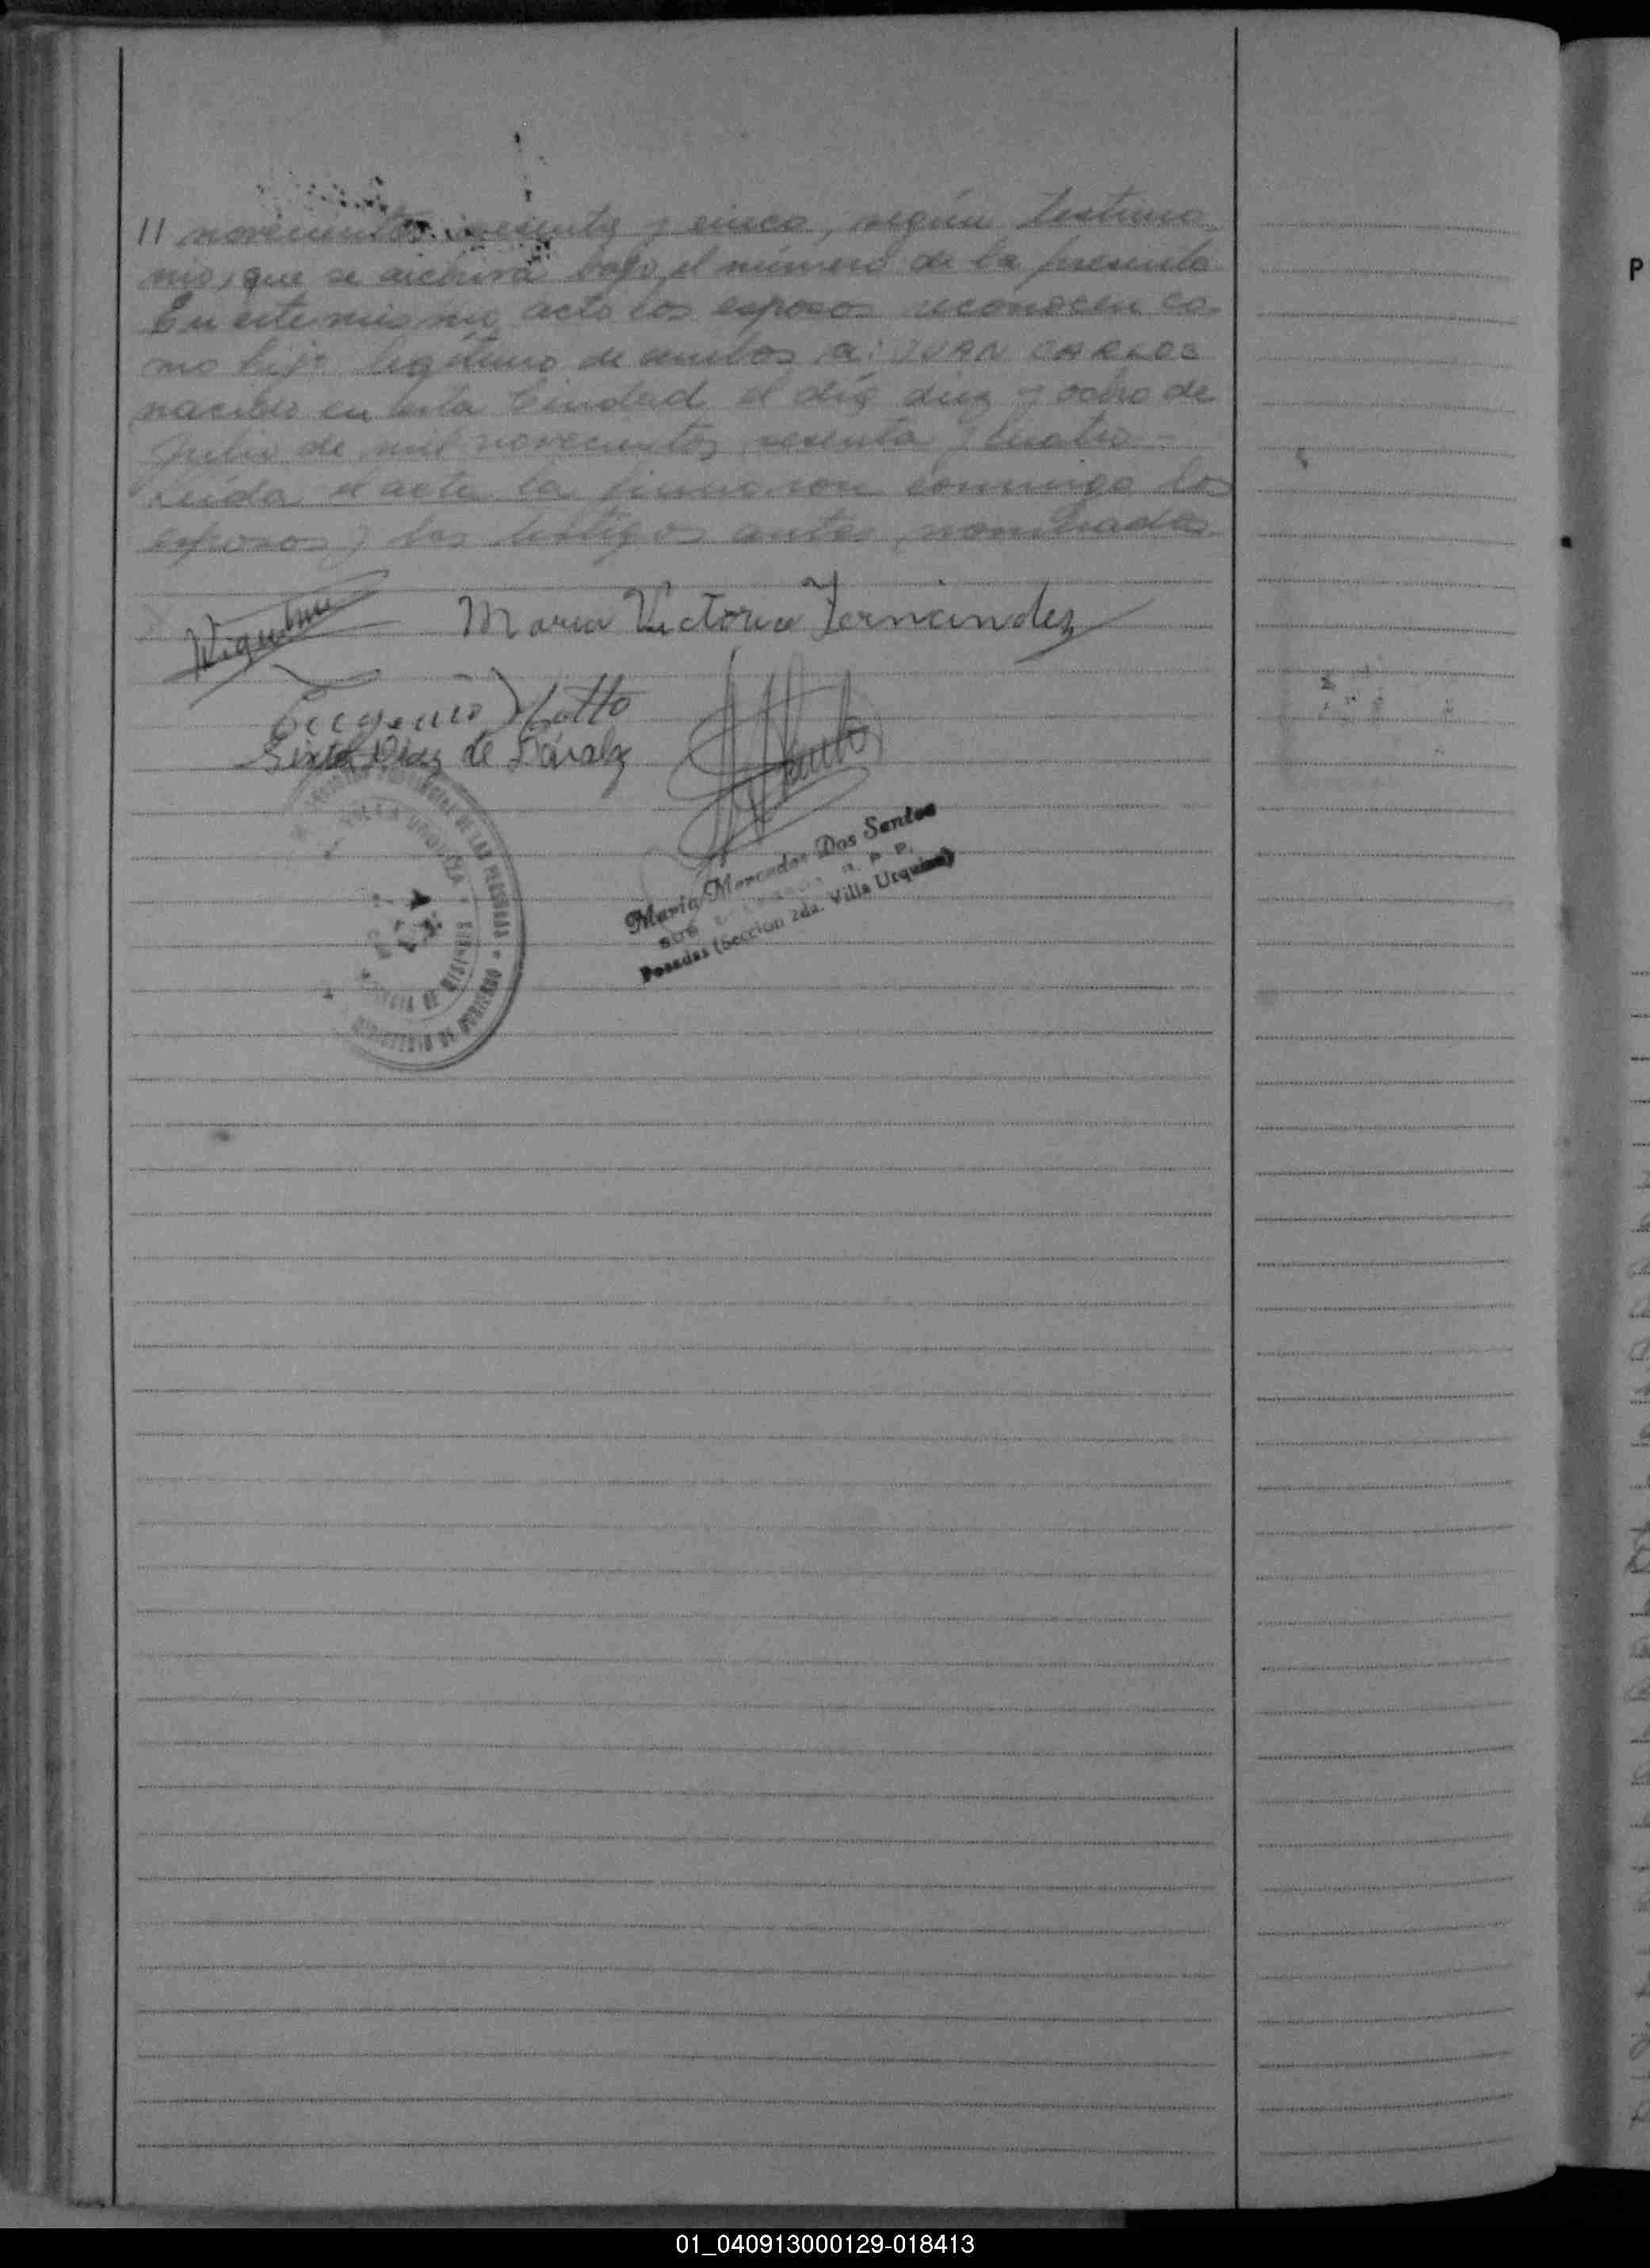 11 novecientos sesenta y cinco, según testimo
nio, que se archiva bajo el número de la presente
En este mismo acto los esposos reconocen co-
mo hijo legítimo de ambos a: JUAN CARLOS
nacido en esta Ciudad el día diez y ocho de
Julio de mil novecientos sesenta y cuatro -
Leída el acta la firmaron conmigo los
esposos y los testigos antes nombrados.
Maria Victoria Fernandez
Eugenio
Sixta Diaz de
PROVINCIAL DE LAS PERSONAS
VILLA URQUIZA
PROVINCIA DE MISIONES
MINISTERIO DE GOBIERNO
Maria Mercedes Dos Santos
R. P. P.
Posadas (Sección 2da. Villa Urquiza)
P
01_040913000129-018413